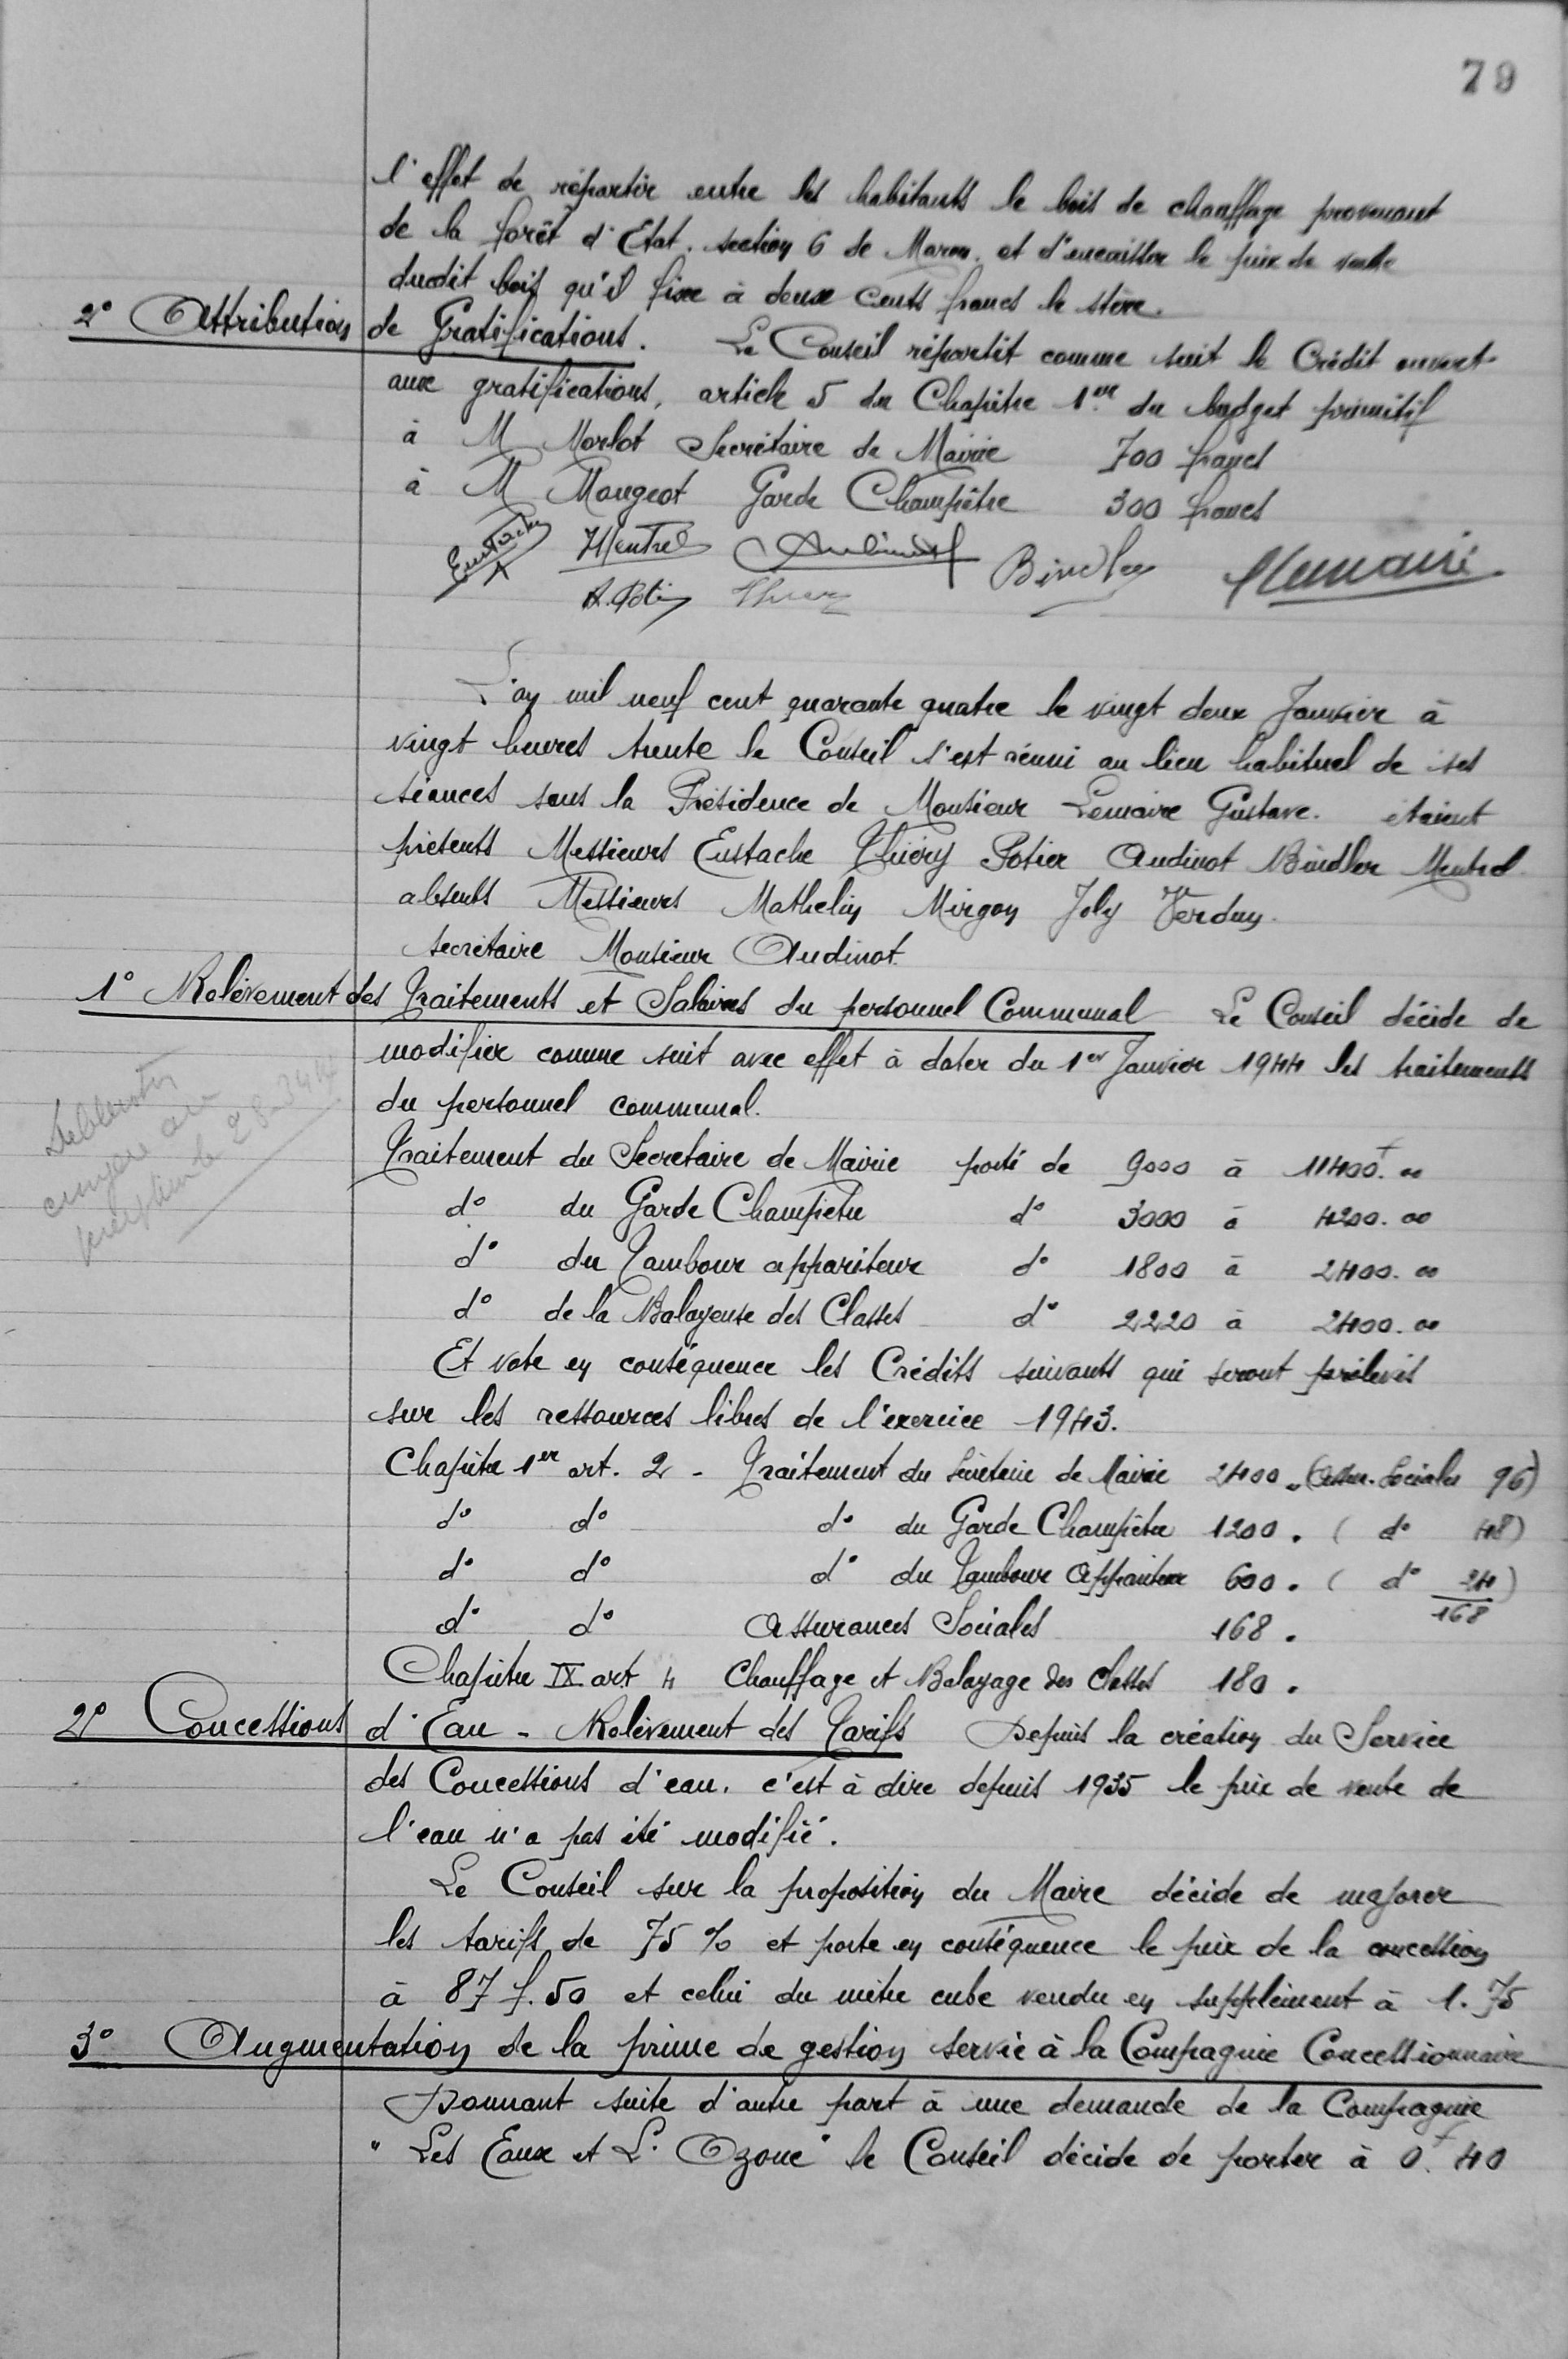 79
l'effet de répartir entre les habitants le bois de chauffage provenant
de la forêt d'Etat. section 6 de Maron. et d'encaisser le prix de vente
dudit bois qu'il fixe à deux cents francs le stère.
2° Attribution de Gratifications. Le Conseil répartit comme suit le Crédit ouvert
aux gratifications, article 5 du Chapitre 1er du budget primitif
à M Morlot Secrétaire de Mairie 700 francs
à M Mougeot Garde Champêtre 300 francs
Eustache Mentrel Audinot Bindler Lemaire
A. Potier Thiery
L'an mil neuf cent quarante quatre le vingt deux Janvier à
vingt heures trente le Conseil s'est réuni au lieu habituel de ses
séances sous la Présidence de Monsieur Lemaire Gustave. étaient
présents Messieurs Eustache Thiéry Potier Audinot Bindler Mentrel
absents Messieurs Mathelin Mirgon Joly Verdun.
secrétaire Monsieur Audinot
1° Relèvement des Traitements et Salaires du personnel Communal Le Conseil décide de
modifier comme suit avec effet à dater du 1er Janvier 1944 les traitements
du personnel communal.
Traitement du Secretaire de Mairie porté de 9000 à 11400f. 00
d° du Garde Champêtre d° 3000 à 4200. 00
d° du Tambour appariteur d° 1800 à 2400. 00
d° de la Balayeuse des Classes d° 2220 à 2400. 00
Et vote en conséquence les Crédits suivants qui seront prélevés
sur les ressources libres de l'exercice 1943.
Chapitre 1er art. 2 - Traitement du Secrétaire de Mairie 2400 . (Assur. Sociales 96)
d° d° d° du Garde Champêtre 1200 . ( d° 48)
d° d° d° du Tambour Appariteur 600 . ( d° 24)
168
d° d° Assurances Sociales 168 .
Chapitre IX art 4 Chauffage et Balayage des Classes 180 .
2° Concessions d'Eau - Relèvement des Tarifs Depuis la création du Service
des Concessions d'eau. c'est à dire depuis 1935 le prix de vente de
l'eau n'a pas été modifié.
Le Conseil sur la proposition du Maire décide de majorer
les tarifs de 75 % et porte en conséquence le prix de la concession
à 87 f. 50 et celui du mètre cube vendu en supplément à 1. 75
3° Augmentation de la prime de gestion servie à la Compagnie Concessionnaire
Donnant suite d'autre part à une demande de la Compagnie
" Les Eaux et L'Ozone" le Conseil décide de porter à 0f. 40